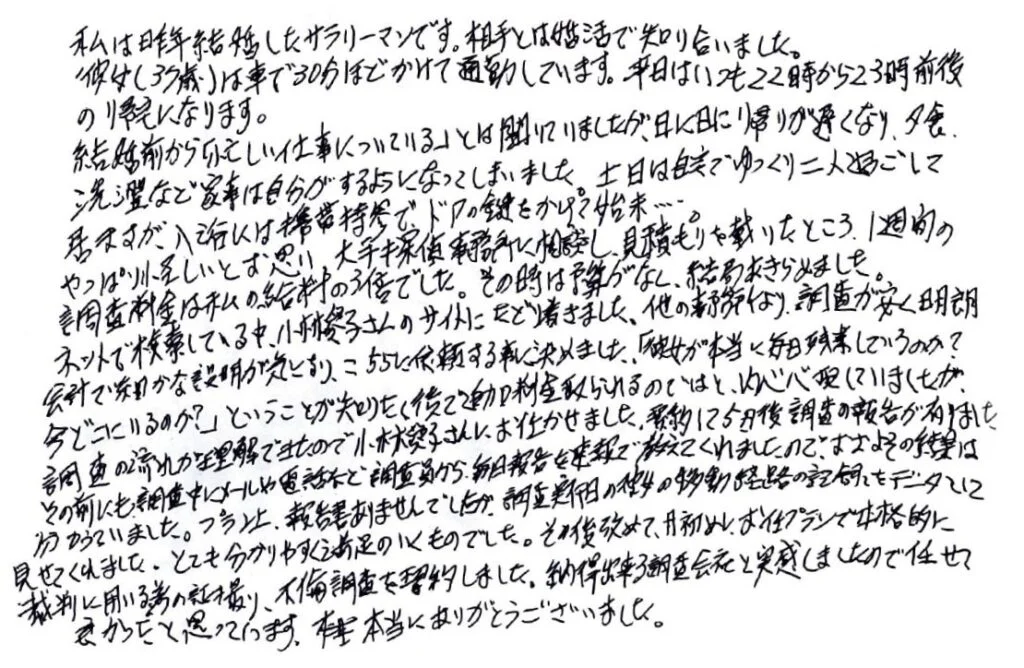 私は昨年結婚したサラリーマンです。相手とは婚活で知り合いました。
彼女(37歳)は車で30分ほどかけて通勤しています。平日はいつも22時から23時前後
の帰宅になります。
結婚前から「忙しい仕事についている」とは聞いていましたが、日に日に帰りが遅くなり、夕食、
洗濯など家事は自分がするようになってしまいました。土日は自宅でゆっくり二人過ごして
居ますが、入浴には携帯持参で、ドアの鍵をかける始末…。
やっぱり怪しいと思い 大手探偵事務所に相談し、見積もりを戴いたところ、1週間の
調査料金は私の給料の3倍でした。その時は予算がなし、結局あきらめました。
ネットで検索している中、小林愛子さんのサイトにたどり着きました。他の事務所より、調査が安く明朗
会計で細かな説明が気になり、こちらに依頼する事に決めました。「彼女が本当に毎日残業しているのか?
今どこにいるのか?」ということが知りたく後で追加料金取られるのではと、内心心配していましたが、
調査の流れが理解できたので小林愛子さんにお任せました。契約して5日後調査の報告が有りました
その前にも調査中にメールや電話など調査員から、毎日報告を速報で教えてくれましたので、おおよその結果は
分かっていました。プラン上、報告書ありませんでしたが、調査実日の彼女の移動経路の記録をデータにて
見せてくれました。とても分かりやすく満足のいくものでした。その後改めて、月初めにお任プランで本格的に
裁判に用いる為の証拠撮り、不倫調査を契約しました。納得出来る調査会社と実感しましたので任せて
良かったと思っています。本当にありがとうございました。